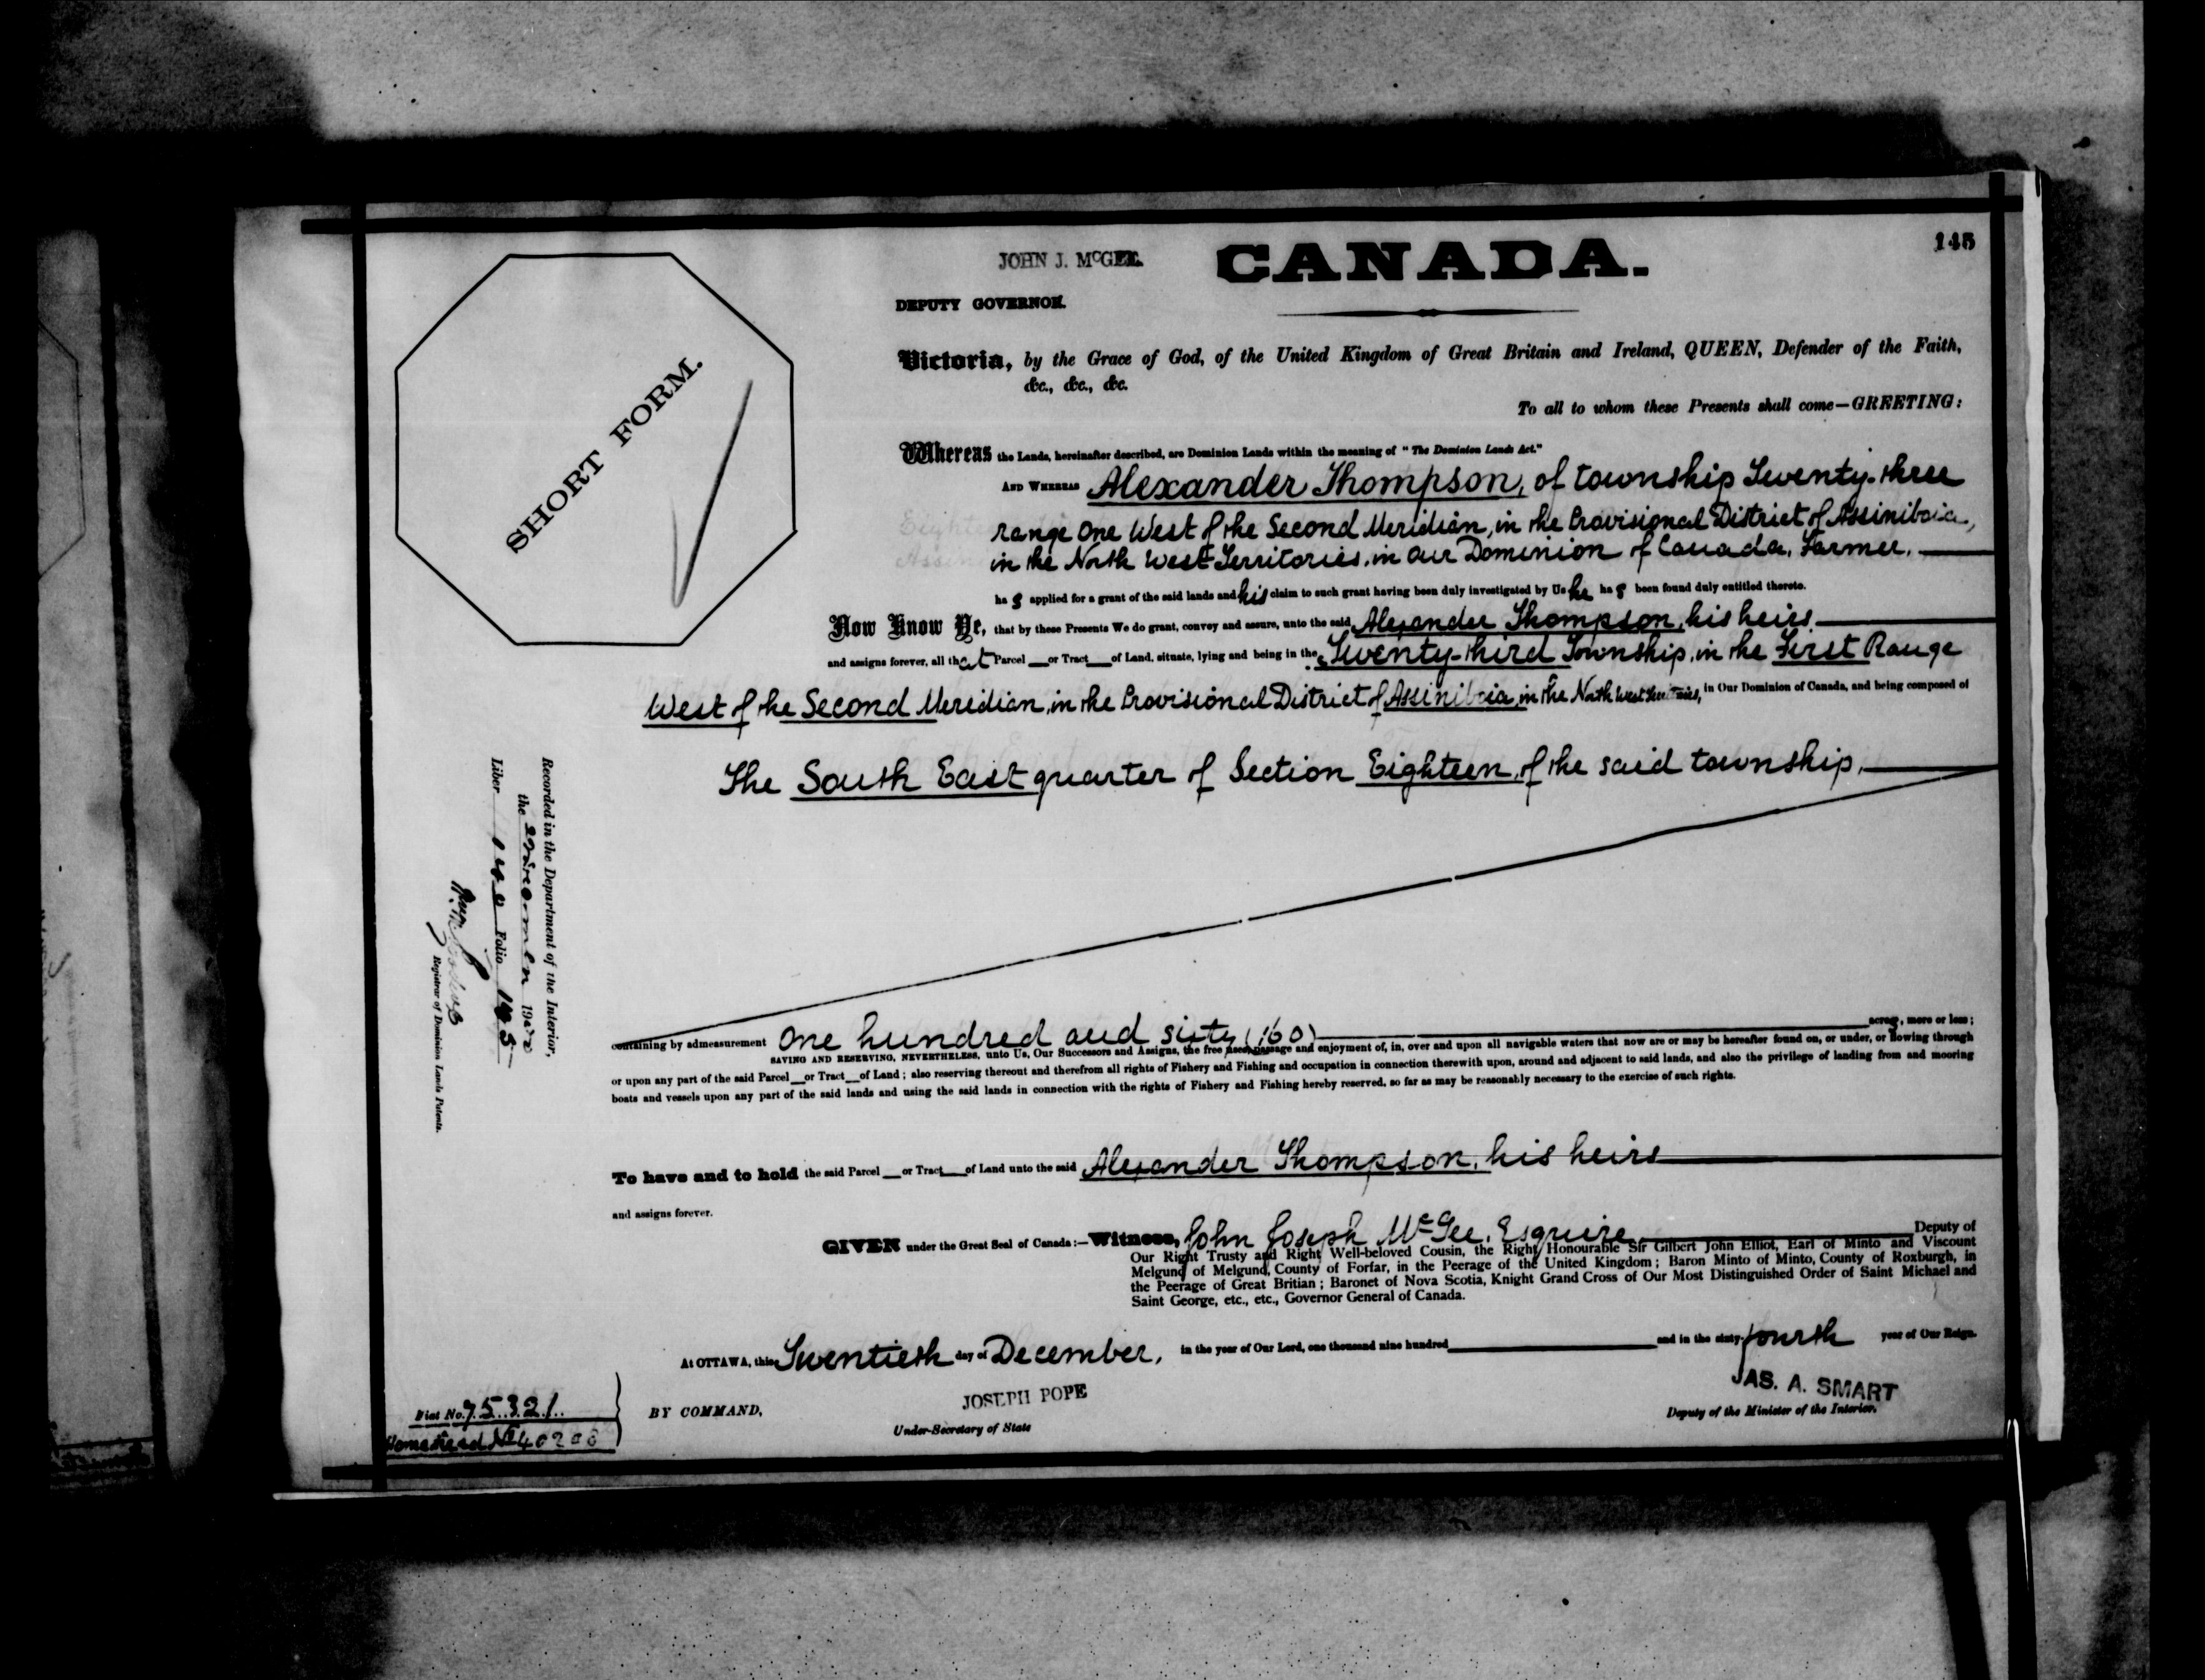 145
JOHN J. McGEE.
CANADA.
DEPUTY GOVERNOR.
SHORT FORM.
Victoria, by the Grace of God, of the United Kingdom of Great Britain and Ireland, QUEEN, Defender of the Faith,
&c., &c., &c.
To all to whom these Presents shall come—GREETING:
Whereas the Lands, hereinafter described, are Dominion Lands within the meaning of "The Dominion Lands Act."
AND WHEREAS Alexander Thompson, of township Twenty-three
range One West of the Second Meridian, in the Provisional District of Assiniboia,
in the North West Territories, in Our Dominion of Canada, Farmer.
ha s applied for a grant of the said lands and his claim to such grant having been duly investigated by Us he ha s been found duly entitled thereto.
Now Know Ye, that by these Presents We do grant, convey and assure, unto the said Alexander Thompson, his heirs
and assigns forever, all that Parcel or Tract of Land, situate, lying and being in the Twenty-third Township, in the First Range
West of the Second Meridian, in the Provisional District of Assiniboia, in the North West Territories, in Our Dominion of Canada, and being composed of
The South East quarter of Section Eighteen, of the said township,
containing by admeasurement One hundred and sixty (160) acres, more or less;
SAVING AND RESERVING, NEVERTHELESS, unto Us, Our Successors and Assigns, the free uses, passage and enjoyment of, in, over and upon all navigable waters that now are or may be hereafter found on, or under, or flowing through
or upon any part of the said Parcel or Tract of Land; also reserving thereout and therefrom all rights of Fishery and Fishing and occupation in connection therewith upon, around and adjacent to said lands, and also the privilege of landing from and mooring
boats and vessels upon any part of the said lands and using the said lands in connection with the rights of Fishery and Fishing hereby reserved, so far as may be reasonably necessary to the exercise of such rights.
To have and to hold the said Parcel or Tract of Land unto the said Alexander Thompson, his heirs
and assigns forever.
GIVEN under the Great Seal of Canada:—Witness, John Joseph McGee, Esquire, Deputy of
Our Right Trusty and Right Well-beloved Cousin, the Right Honourable Sir Gilbert John Elliot, Earl of Minto and Viscount
Melgund of Melgund, County of Forfar, in the Peerage of the United Kingdom; Baron Minto of Minto, County of Roxburgh, in
the Peerage of Great Britian; Baronet of Nova Scotia, Knight Grand Cross of Our Most Distinguished Order of Saint Michael and
Saint George, etc., etc., Governor General of Canada.
At OTTAWA, this Twentieth day of December, in the year of Our Lord, one thousand nine hundred and in the sixty-fourth year of Our Reign.
BY COMMAND,
JOSEPH POPE
Under-Secretary of State
JAS. A. SMART
Deputy of the Minister of the Interior.
Recorded in the Department of the Interior,
the 190
Liber 140 Folio 145
Registrar of Dominion Lands Patents.
Fiat No. 75321
Homestead No 40208